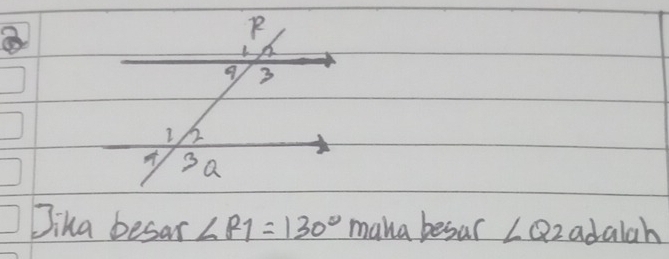 2
P
1 2
4 3
1 2
4 3 Q
Jika besar ∠P1 = 130° maka besar ∠Q2 adalah